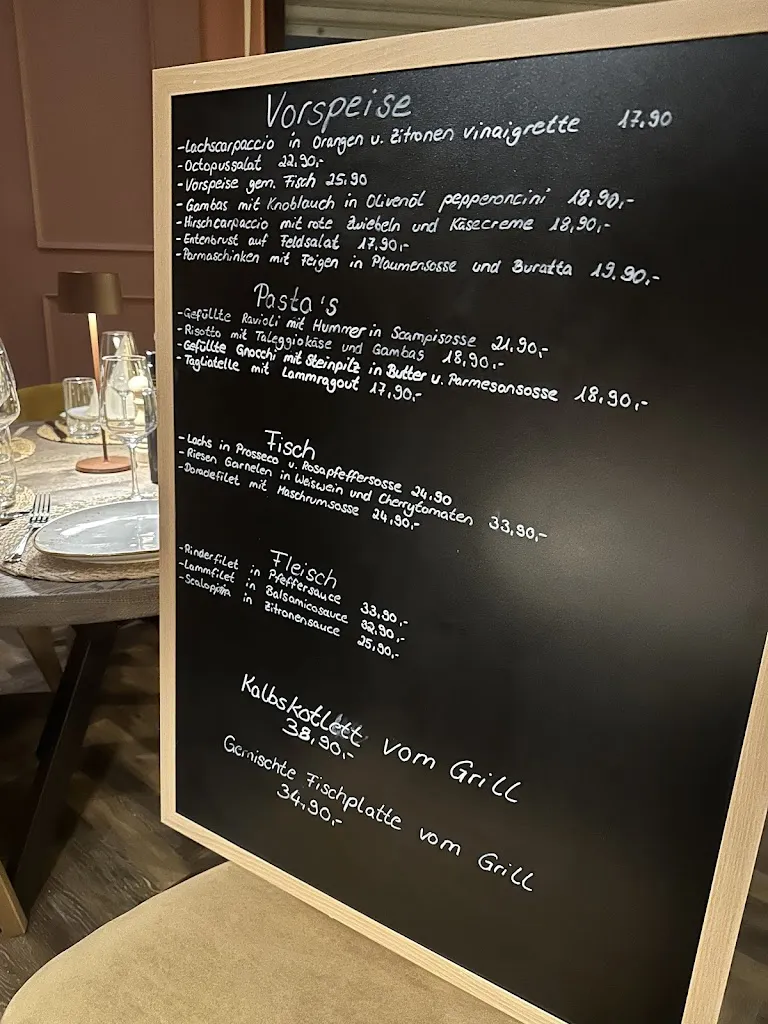 Vorspeise
-Lachscarpaccio in Orangen u. Zitronen vinaigrette 17.90
-Octopussalat 22,90,-
-Vorspeise gem. Fisch 25.90
-Gambas mit Knoblauch in Olivenöl pepperoncini 18,90,-
-Hirschcarpaccio mit rote Zwiebeln und Käsecreme 18,90,-
-Entenbrust auf Feldsalat 17,90,-
-Parmaschinken mit Feigen in Plaumensosse und Buratta 19.90,-
Pasta's
-Gefüllte Ravioli mit Hummer in Scampisosse 21.90,-
-Risotto mit Taleggiokäse und Gambas 18,90,-
-Gefüllte Gnocchi mit Steinpilz in Butter u. Parmesansosse 18,90,-
-Tagliatelle mit Lammragout 17,90,-
Fisch
-Lachs in Prosseco u. Rosapfeffersosse 24,90
-Riesen Garnelen in Weiswein und Cherrytomaten 33,90,-
-Doradefilet mit Maschrumsosse 24,90,-
Fleisch
-Rinderfilet in Pfeffersauce 33,90,-
-Lammfilet in Balsamicosauce 32,90,-
-Scalopina in Zitronensauce 25,90,-
Kalbskotlett vom Grill
38,90,-
Gemischte Fischplatte vom Grill
34,90,-